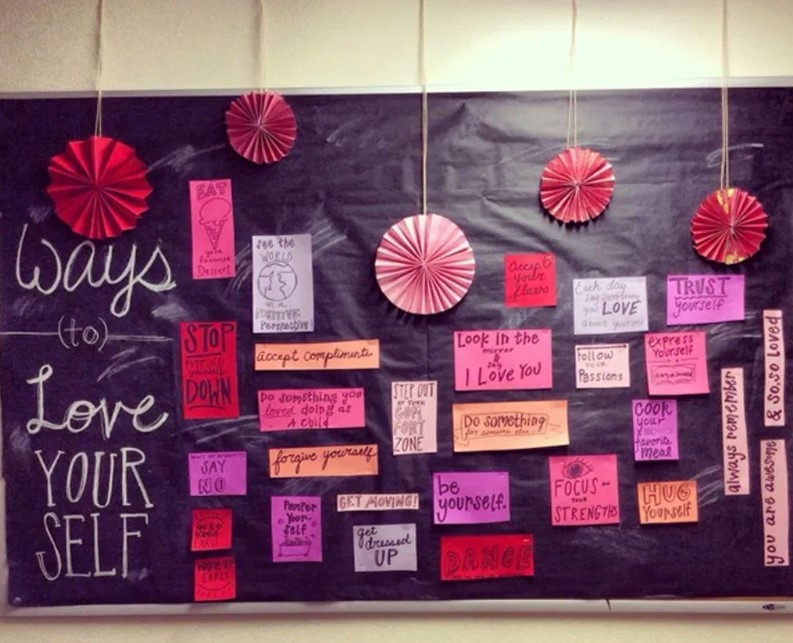 Ways
(to)
Love
YOUR
SELF
EAT
your
Favourite
Dessert
See the
WORLD
in a
POSITIVE
Perspective
STOP
PUTTING yourself
DOWN
Accept Compliments
Do something you
loved doing as
a child
forgive yourself
SAY
NO
Pamper
Your-
self
GET MOVING!
get
dressed
UP
WAKE UP
EARLY
STEP OUT
OF YOUR
COM
FORT
ZONE
Accept
your
flaws
Look in the
mirror
& say
I Love You
Do something
for someone else
be
yourself.
DANCE
Each day
say something
you LOVE
about yourself
Follow
YOUR
Passions
TRUST
yourself
express
Yourself
COOK
your
favorite
Meal
FOCUS
ON YOUR
STRENGTHS
HUG
Yourself
always remember
you are awesome
& so, so loved